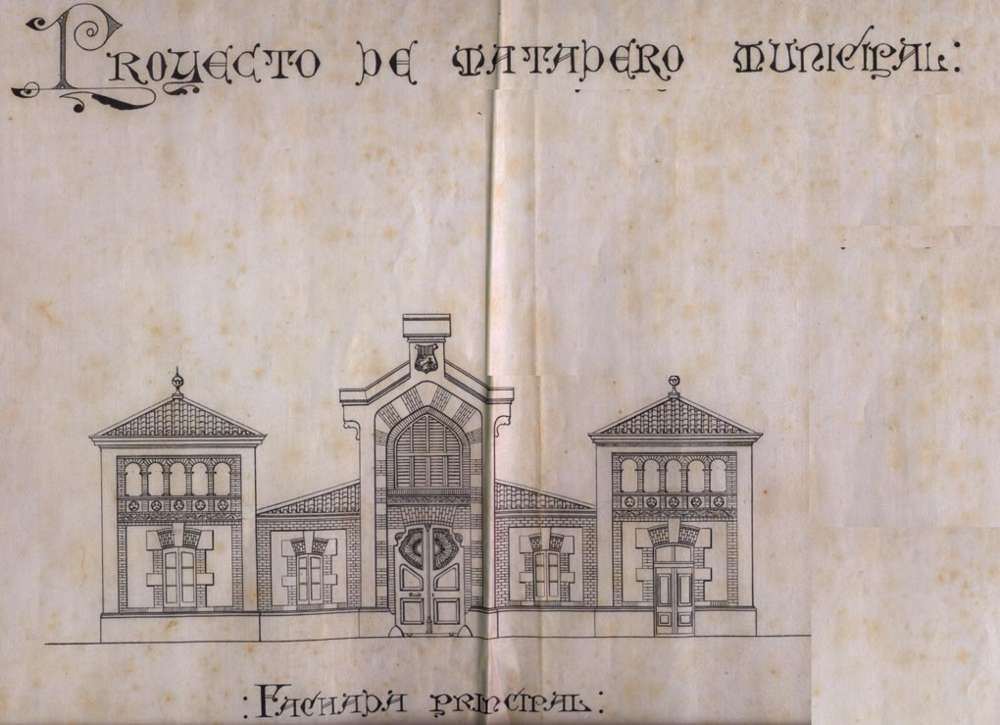 Proyecto de Matadero Municipal:
:Fachada principal: